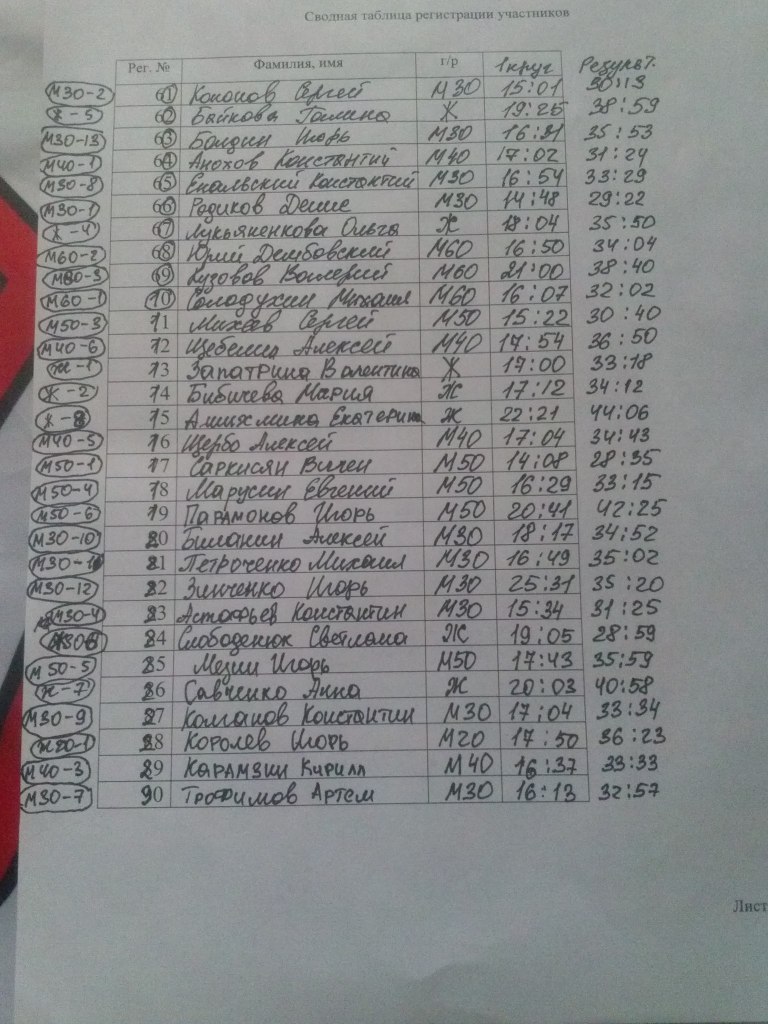 Сводная таблица регистрации участников
Рег. № Фамилия, имя г/р 1 круг Результ.
М30-2 61 Кононов Сергей М30 15:01 30:13
Ж-5 62 Байкова Галина Ж 19:25 38:59
М30-13 63 Болдин Игорь М30 16:31 35:53
М40-1 64 Анохов Константий М40 17:02 31:24
М30-8 65 Константий М30 16:54 33:29
М30-1 66 Родиков М30 14:48 29:22
Ж-4 67 Лукьяненкова Ольга Ж 18:04 35:50
М60-2 68 Юрий Дембовский М60 16:50 34:04
М60-3 69 Кузовов Валерий М60 21:00 38:40
М60-1 70 Солодухин Михаил М60 16:07 32:02
М50-3 71 Михеев Сергей М50 15:22 30:40
М40-6 72 Алексей М40 17:54 36:50
Ж-1 73 Запатрина Валентина Ж 17:00 33:18
Ж-2 74 Бибичева Мария Ж 17:12 34:12
Ж-8 75 Екатерина Ж 22:21 44:06
М40-5 76 Щербо Алексей М40 17:04 34:43
М50-1 77 Саркисян М50 14:08 28:35
М50-4 78 Марусин Евгений М50 16:29 33:15
М50-6 79 Парамонов Игорь М50 20:41 42:25
М30-10 80 Биланин Алексей М30 18:17 34:52
М30-1 81 Петроченко Михаил М30 16:49 35:02
М30-12 82 Зинченко Игорь М30 25:31 35:20
М30-4 83 Астафьев Константин М30 15:34 31:25
84 Слободенюк Светлана Ж 19:05 28:59
М50-5 85 Мезин Игорь М50 17:43 35:59
Ж-7 86 Савченко Анна Ж 20:03 40:58
М30-9 87 Колганов Константин М30 17:04 33:34
88 Королев Игорь М20 17:50 36:23
М40-3 89 Карамзин Кирилл М40 16:37 33:33
М30-7 90 Трофимов Артем М30 16:13 32:57
Лист